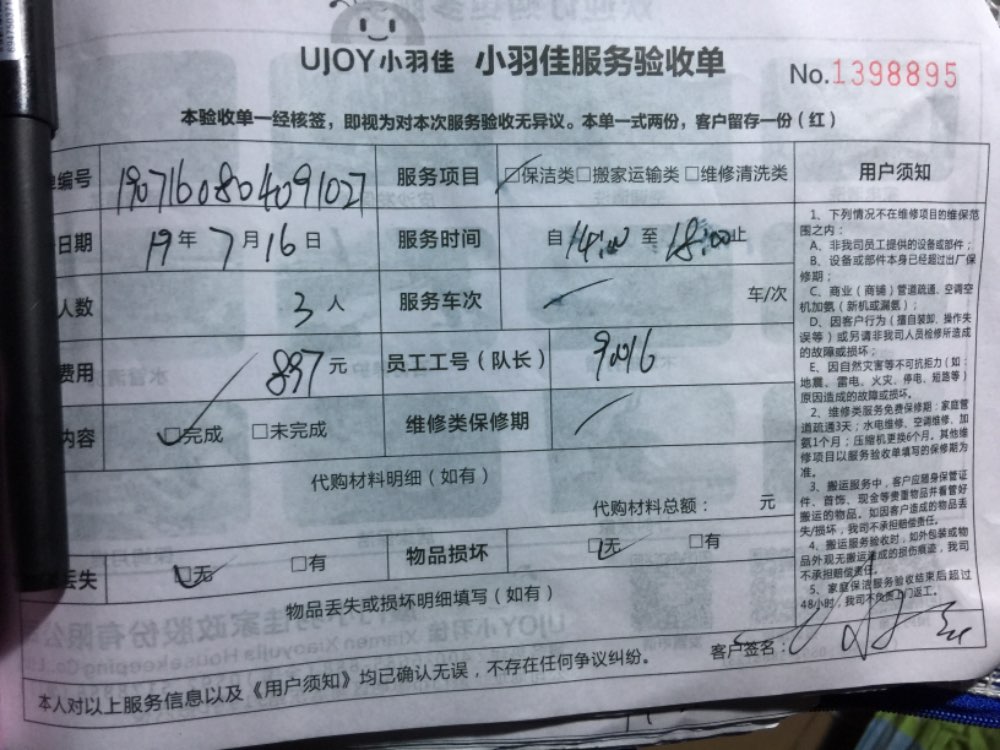 UJOY小羽佳 小羽佳服务验收单
No.1398895
本验收单一经核签，即视为对本次服务验收无异议。本单一式两份，客户留存一份（红）
编号 1907160804091027 服务项目 ☑保洁类□搬家运输类□维修清洗类 用户须知
日期 19年7月16日 服务时间 自14:00至18:00止
人数 3人 服务车次 车/次
费用 897元 员工工号（队长） 9016
内容 ☑完成 □未完成 维修类保修期
代购材料明细（如有）
代购材料总额： 元
丢失 ☑无 □有 物品损坏 ☑无 □有
物品丢失或损坏明细填写（如有）
1、下列情况不在维修项目的维保范
围之内：
A、非我司员工提供的设备或部件；
B、设备或部件本身已经超过出厂保
修期；
C、商业（商铺）管道疏通、空调空
机加氨（新机或漏氨）；
D、因客户行为（擅自装卸、操作失
误等）或另请非我司人员检修所造成
的故障或损坏；
E、因自然灾害等不可抗拒力（如：
地震、雷电、火灾、停电、短路等）
原因造成的故障或损坏。
2、维修类服务免费保修期：家庭管
道疏通3天；水电维修、空调维修、加
氨1个月；压缩机更换6个月。其他维
修项目以服务验收单填写的保修期为
准。
3、搬运服务中，客户应随身保管证
件、首饰、现金等贵重物品并看管好
搬运的物品。如因客户造成的物品丢
失/损坏，我司不承担赔偿责任。
4、搬运服务验收时，如外包装或物
品外观无搬运造成的损伤痕迹，我司
不承担赔偿责任。
5、家庭保洁服务验收结束后超过
48小时，我司不负责上门返工。
客户签名：
本人对以上服务信息以及《用户须知》均已确认无误，不存在任何争议纠纷。